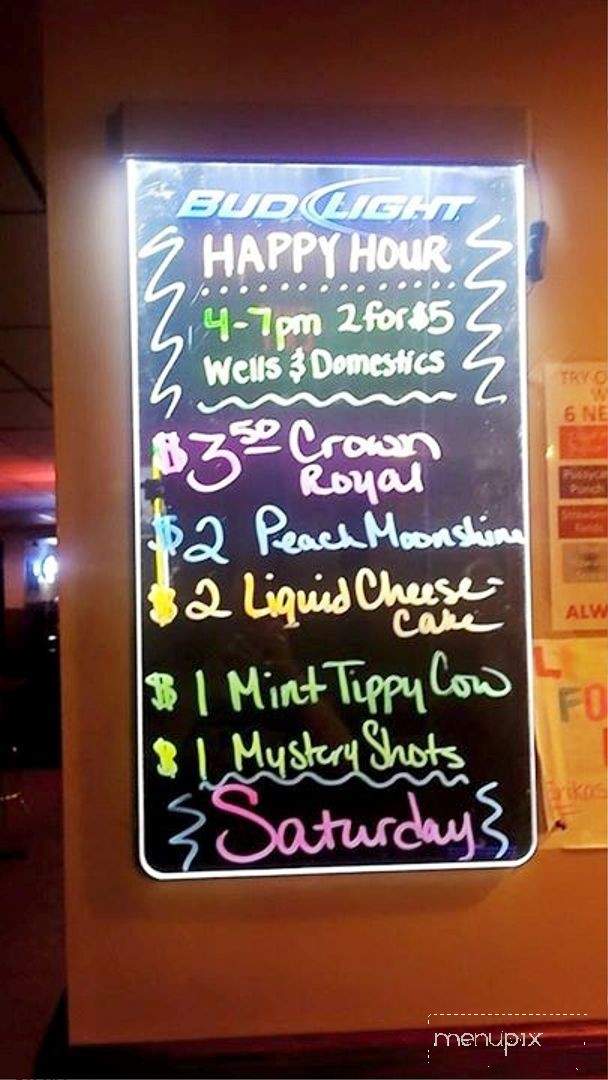 BUD LIGHT
HAPPY HOUR
4-7pm 2 for $5
Wells & Domestics
$3.50 Crown
Royal
$2 Peach Moonshine
$2 Liquid Cheese-
cake
$1 Mint Tippy Cow
$1 Mystery Shots
Saturday
TRY O
6 NE
ALW
L
FO
menupix